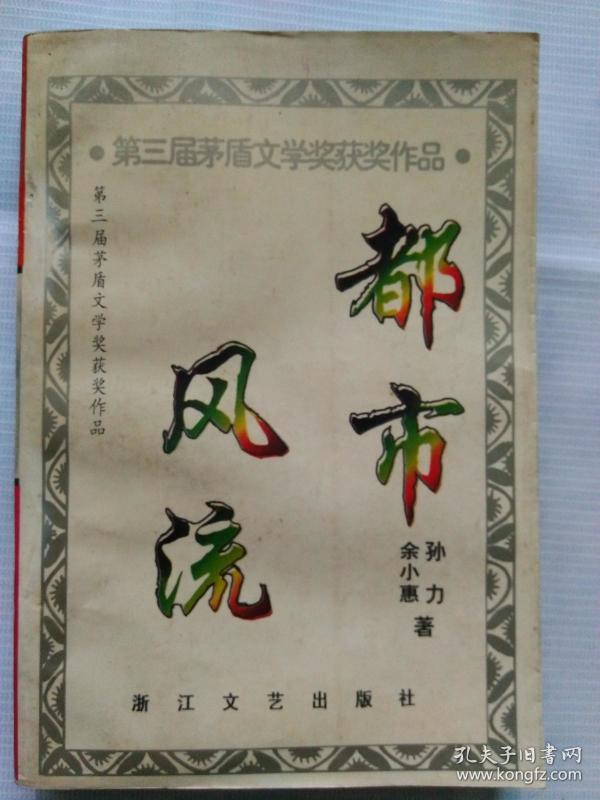 •第三届茅盾文学奖获奖作品•
都市
风流
第三届茅盾文学奖获奖作品
孙力
余小惠
著
浙江文艺出版社
孔夫子旧书网
www.kongfz.com